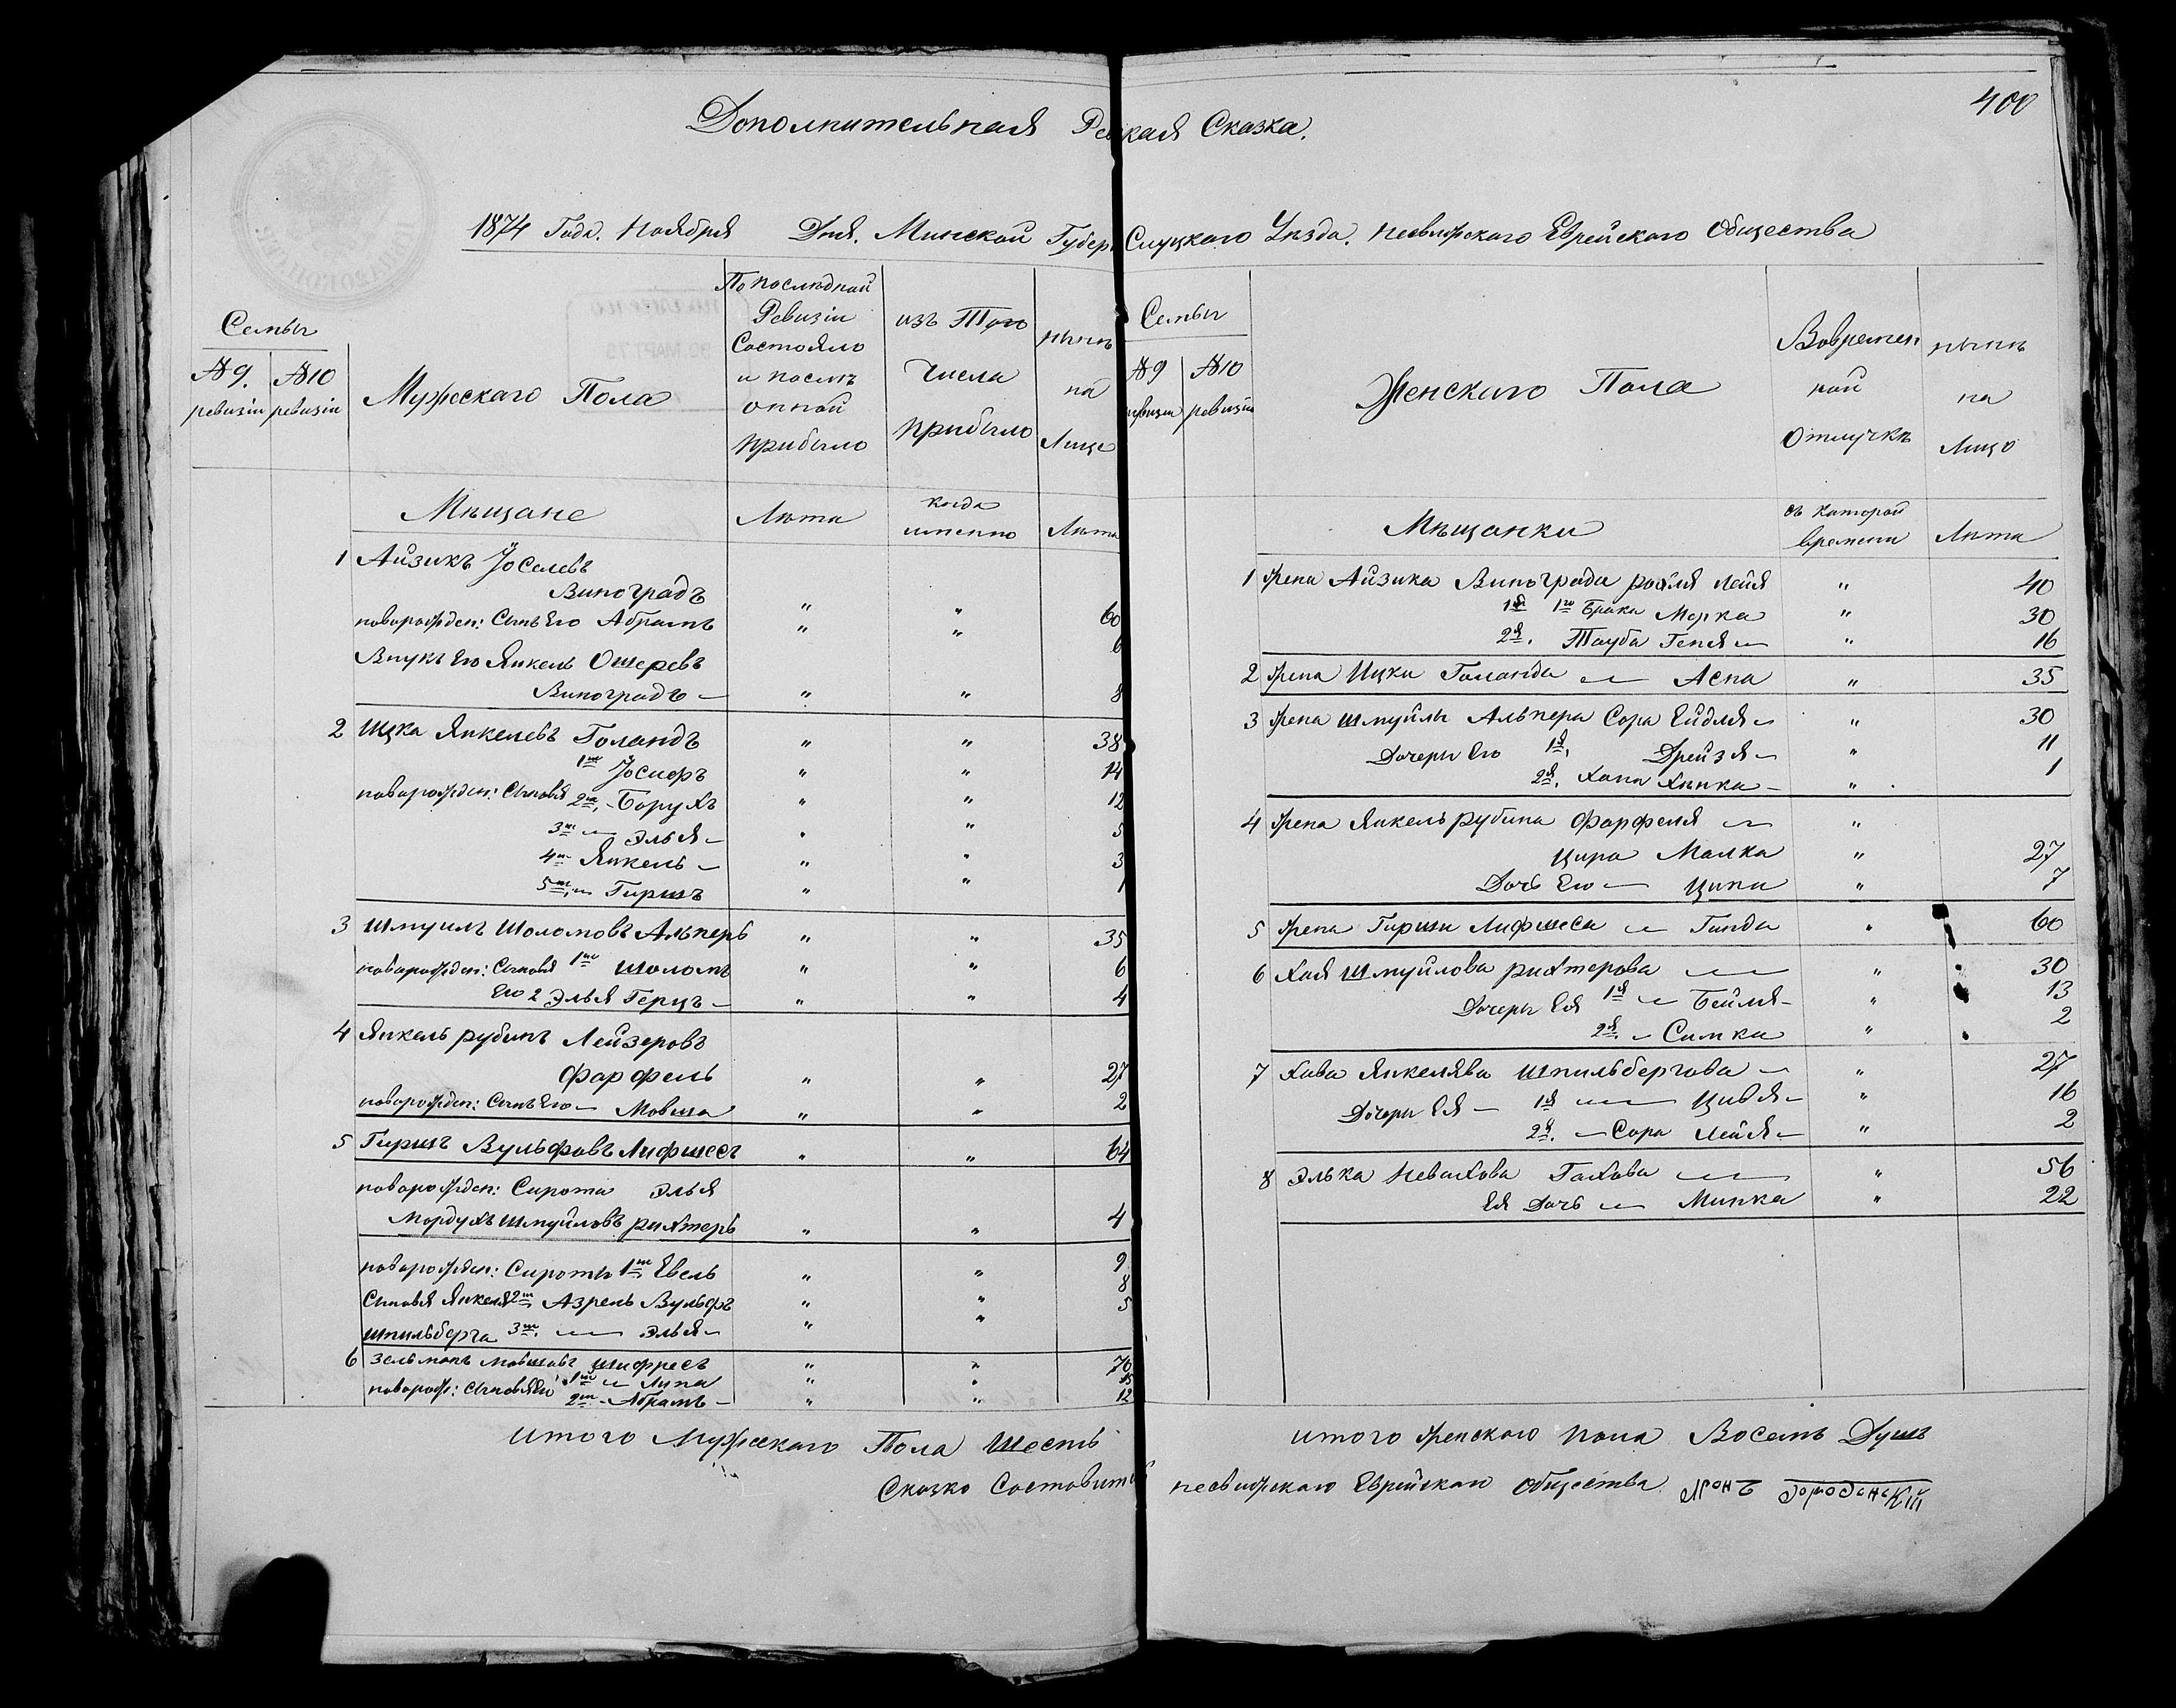 400
Дополнительная Ре кая Сказка.
1874 Года. Ноября Дня. Минской Губер Слуцкого Уѣзда. Несвижского Еврейского Общества
Семьи
№ 9. ревизіи
№ 10 ревизіи
Мужескаго Пола
По послѣдной
Ревизіи
Состояло
и послѣ
оной
прибыло
изъ Того
числа
прибыло
нынѣ
на
Лице
Мѣщане
Лѣта
когда
именно
Лѣта
1 Айзикъ Іоселевъ
Виноградъ " " 60
новорожден: Сынъ Его Абрамъ " " 6
Внукъ Его Янкель Ошеровъ
Виноградъ " " 8
2 Ицка Янкелевъ Голандъ " " 38
1й Іосифъ " " 14
новорожден: Сыновья 2й Борухъ " " 12
3й Элья " " 5
4й Янкель " " 3
5й Гиршъ " " 1
3 Шмуилъ Шоломовъ Альперъ " " 35
новорожден: Сыновья 1й Шоломъ " " 6
Его 2 Элья Герцъ " " 4
4 Янкель рубинъ Лейзеровъ
Фарфель " " 27
новорожден: Сынъ Его Мовша " " 2
5 Гиршъ Вульфовъ Лифшесъ " " 64
новорожден: Сирота Элья
Мордухъ Шмуйловъ рихтеръ " " 4
новорожден: Сироты 1й Евель " " 9
Сыновья Янкеля 2й Азрель Вульфъ " " 8
Шпильберга 3й Элья " " 5
6 Зельманъ Мовшовъ Шифресъ " " 70
новорож: Сыновья Его 1й Липа " " 15
2й Абрамъ " " 12
итого Мужескаго Пола Шесть
Семьи
№ 9 ревизіи
№ 10 ревизіи
Женскаго Пола
Вовремен
ной
Отлучкѣ
нынѣ
на
Лицо
Мѣщанки
съ которой
времени
Лѣта
1 Жена Айзика Винограда ройля Лейя " 40
1я 1го Брака Мерка " 30
2я. Тауба Геня " 16
2 Жена Ицки Голанда Асна " 35
3 Жена Шмуйлы Альпера Сора Ейдля " 30
Дочери Его 1я Дрейзя " 11
2я. Хана Хинка " 1
4 Жена Янкель рубина Фарфеля "
Цира Малка " 27
Дочь Его Ципи " 7
5 Жена Гирши Лифшеса Гинда " 60
6 Хая Шмуйлова рихтерова " 30
Дочери Ея 1я Бейля " 13
2я. Симки " 2
7 Хава Янкелява Шпильбергова " 27
Дочери Ея 1я Цивья " 16
2я. Сора Лейя " 2
8 Элька Невахова " 56
Ея Дочь Минка " 22
итого Женскаго пола Восемь Душъ
Сказко Составит Несвижскаго Еврейскаго Общества